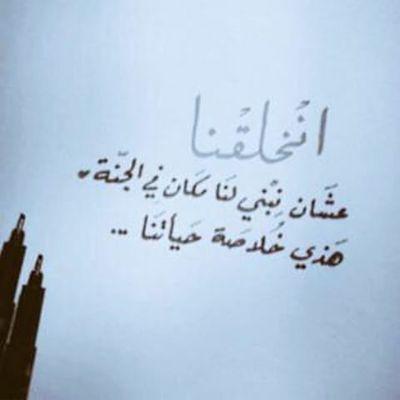 انْخلقْنا
عشَان نِبْني لنَا مكَان فِي الجنّة♥
هَذي خُلاصَة حيَاتنَا ..